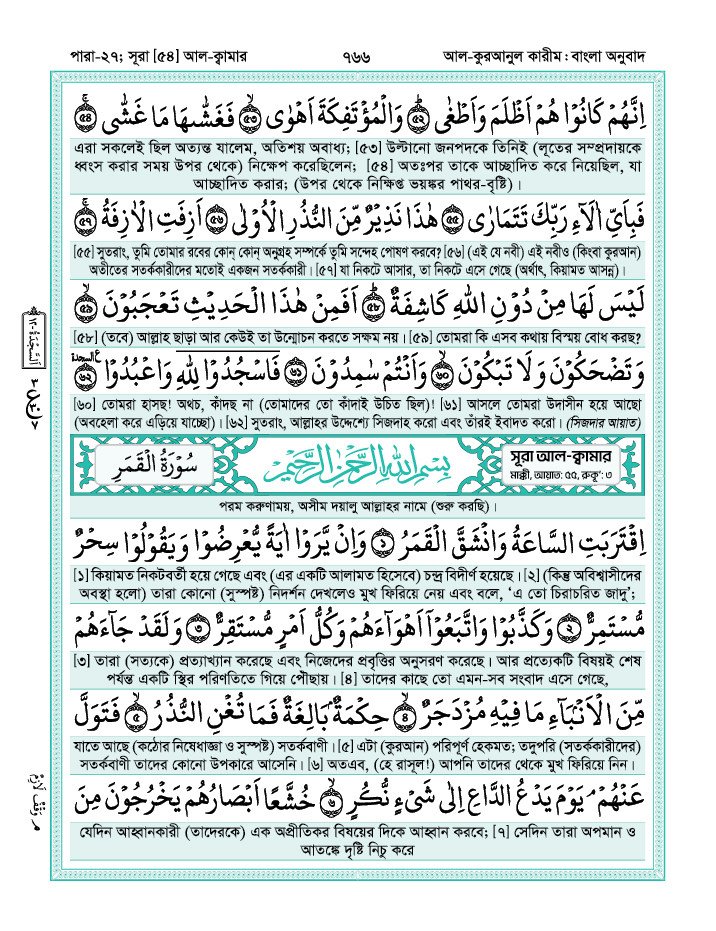 পারা-২৭; সূরা [৫৪] আল-ক্বামার ৭৬৬ আল-কুরআনুল কারীম : বাংলা অনুবাদ
اِنَّهُمْ كَانُوْا هُمْ اَظْلَمَ وَاَطْغٰى ۝٥٢ وَالْمُؤْتَفِكَةَ اَهْوٰى ۝٥٣ فَغَشّٰىهَا مَا غَشّٰى ۝٥٤
এরা সকলেই ছিল অত্যন্ত যালেম, অতিশয় অবাধ্য; [৫৩] উল্টানো জনপদকে তিনিই (লূতের সম্প্রদায়কে
ধ্বংস করার সময় উপর থেকে) নিক্ষেপ করেছিলেন; [৫৪] অতঃপর তাকে আচ্ছাদিত করে নিয়েছিল, যা
আচ্ছাদিত করার; (উপর থেকে নিক্ষিপ্ত ভয়ঙ্কর পাথর-বৃষ্টি)।
فَبِاَيِّ اٰلَآءِ رَبِّكَ تَتَمَارٰى ۝٥٥ هٰذَا نَذِيْرٌ مِّنَ النُّذُرِ الْاُوْلٰى ۝٥٦ اَزِفَتِ الْاٰزِفَةُ ۝٥٧
[৫৫] সুতরাং, তুমি তোমার রবের কোন্ কোন্ অনুগ্রহ সম্পর্কে তুমি সন্দেহ পোষণ করবে? [৫৬] (এই যে নবী) এই নবীও (কিংবা কুরআন)
অতীতের সতর্ককারীদের মতোই একজন সতর্ককারী। [৫৭] যা নিকটে আসার, তা নিকটে এসে গেছে (অর্থাৎ, কিয়ামত আসন্ন)।
لَيْسَ لَهَا مِنْ دُوْنِ اللّٰهِ كَاشِفَةٌ ۝٥٨ اَفَمِنْ هٰذَا الْحَدِيْثِ تَعْجَبُوْنَ ۝٥٩
[৫৮] (তবে) আল্লাহ ছাড়া আর কেউই তা উন্মোচন করতে সক্ষম নয়। [৫৯] তোমরা কি এসব কথায় বিস্ময় বোধ করছ?
وَتَضْحَكُوْنَ وَلَا تَبْكُوْنَ ۝٦٠ وَاَنْتُمْ سٰمِدُوْنَ ۝٦١ فَاسْجُدُوْا لِلّٰهِ وَاعْبُدُوْا ۝٦٢ السجدة
اَلسَّجْدَةُ ١٢
[৬০] তোমরা হাসছ! অথচ, কাঁদছ না (তোমাদের তো কাঁদাই উচিত ছিল)! [৬১] আসলে তোমরা উদাসীন হয়ে আছো
(অবহেলা করে এড়িয়ে যাচ্ছো)। [৬২] সুতরাং, আল্লাহর উদ্দেশ্যে সিজদাহ করো এবং তাঁরই ইবাদত করো। (সিজদার আয়াত)
سُوْرَةُ الْقَمَرِ بِسْمِ اللّٰهِ الرَّحْمٰنِ الرَّحِيْمِ সূরা আল-ক্বামার
মাক্কী, আয়াত: ৫৫, রুকূ': ৩
পরম করুণাময়, অসীম দয়ালু আল্লাহর নামে (শুরু করছি)।
اِقْتَرَبَتِ السَّاعَةُ وَانْشَقَّ الْقَمَرُ ۝١ وَاِنْ يَّرَوْا اٰيَةً يُّعْرِضُوْا وَيَقُوْلُوْا سِحْرٌ
[১] কিয়ামত নিকটবর্তী হয়ে গেছে এবং (এর একটি আলামত হিসেবে) চন্দ্র বিদীর্ণ হয়েছে। [২] (কিন্তু অবিশ্বাসীদের
অবস্থা হলো) তারা কোনো (সুস্পষ্ট) নিদর্শন দেখলেও মুখ ফিরিয়ে নেয় এবং বলে, ‘এ তো চিরাচরিত জাদু’;
مُّسْتَمِرٌّ ۝٢ وَكَذَّبُوْا وَاتَّبَعُوْٓا اَهْوَآءَهُمْ وَكُلُّ اَمْرٍ مُّسْتَقِرٌّ ۝٣ وَلَقَدْ جَآءَهُمْ
[৩] তারা (সত্যকে) প্রত্যাখ্যান করেছে এবং নিজেদের প্রবৃত্তির অনুসরণ করেছে। আর প্রত্যেকটি বিষয়ই শেষ
পর্যন্ত একটি স্থির পরিণতিতে গিয়ে পৌঁছায়। [৪] তাদের কাছে তো এমন-সব সংবাদ এসে গেছে,
مِّنَ الْاَنْۢبَآءِ مَا فِيْهِ مُزْدَجَرٌ ۝٤ حِكْمَةٌۢ بَالِغَةٌ فَمَا تُغْنِ النُّذُرُ ۝٥ فَتَوَلَّ
যাতে আছে (কঠোর নিষেধাজ্ঞা ও সুস্পষ্ট) সতর্কবাণী। [৫] এটা (কুরআন) পরিপূর্ণ হেকমত; তদুপরি (সতর্ককারীদের)
সতর্কবাণী তাদের কোনো উপকারে আসেনি। [৬] অতএব, (হে রাসূল!) আপনি তাদের থেকে মুখ ফিরিয়ে নিন।
عَنْهُمْ ۘ يَوْمَ يَدْعُ الدَّاعِ اِلٰى شَيْءٍ نُّكُرٍ ۝٦ خُشَّعًا اَبْصَارُهُمْ يَخْرُجُوْنَ مِنَ
وَقْف لَازِمْ
যেদিন আহ্বানকারী (তাদেরকে) এক অপ্রীতিকর বিষয়ের দিকে আহ্বান করবে; [৭] সেদিন তারা অপমান ও
আতঙ্কে দৃষ্টি নিচু করে